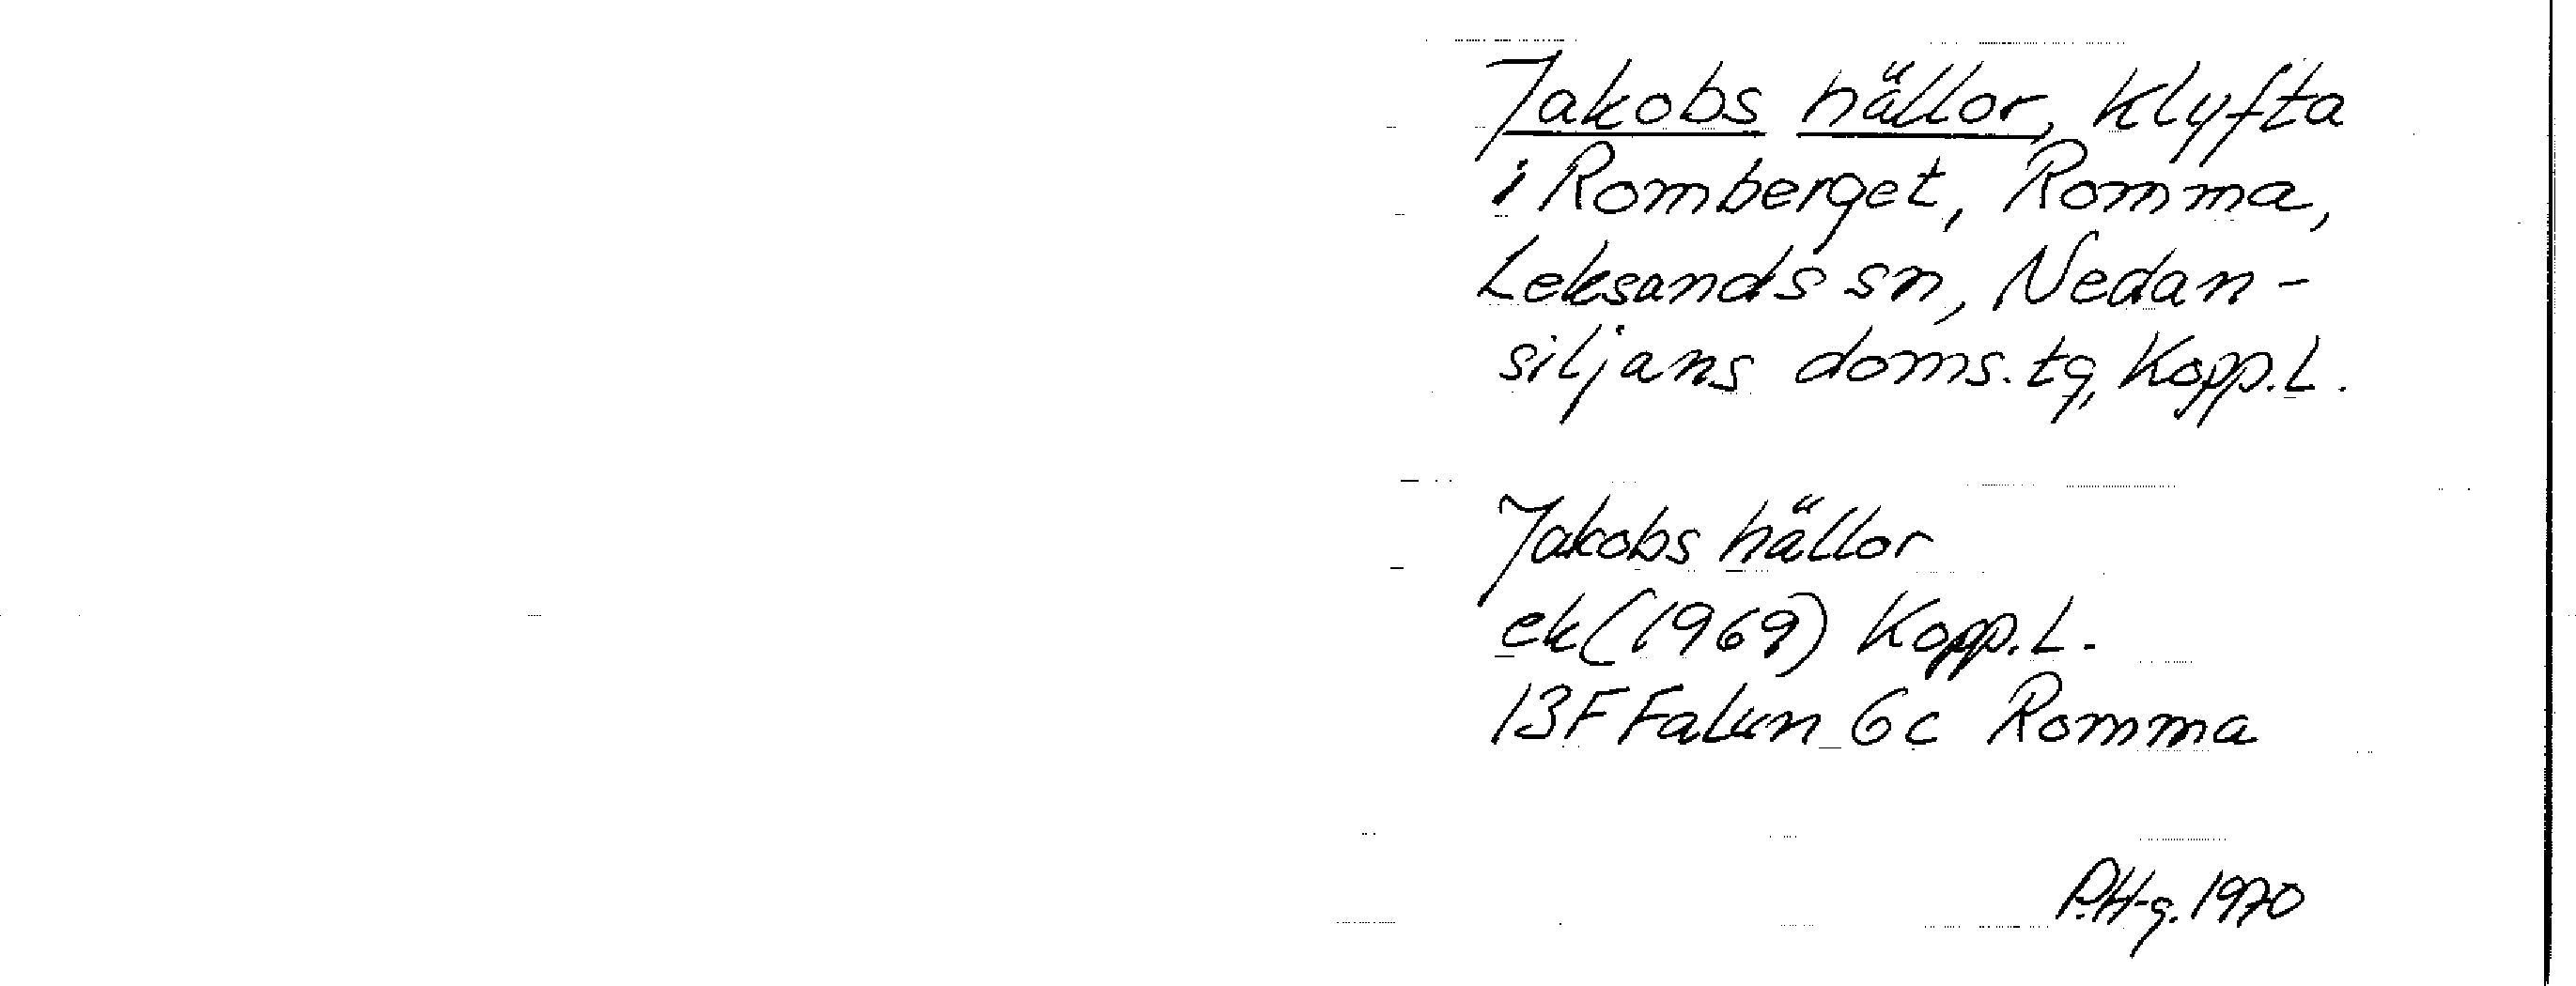 Jakobs hällor, klyfta
i Romberget, Romma,
Leksands sn, Nedan-
siljans doms. tg, Kopp. L.
Jakobs hällor
ek (1969) Kopp. L.
13F Falun 6c Romma
P.H-g. 1970